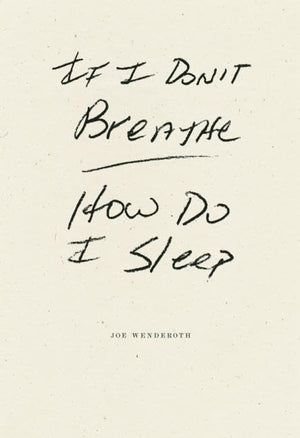 If I Don't
Breathe
How Do
I Sleep
JOE WENDEROTH